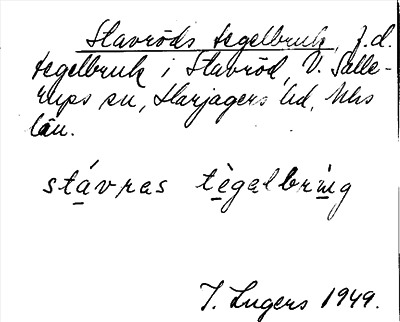 Stavröds tegelbruk, f.d.
tegelbruk i Stavröd, V. Salle-
rups sn, Harjagers hd, Mhs
län.
stávras tègalbrúg
I. Lugers 1949.